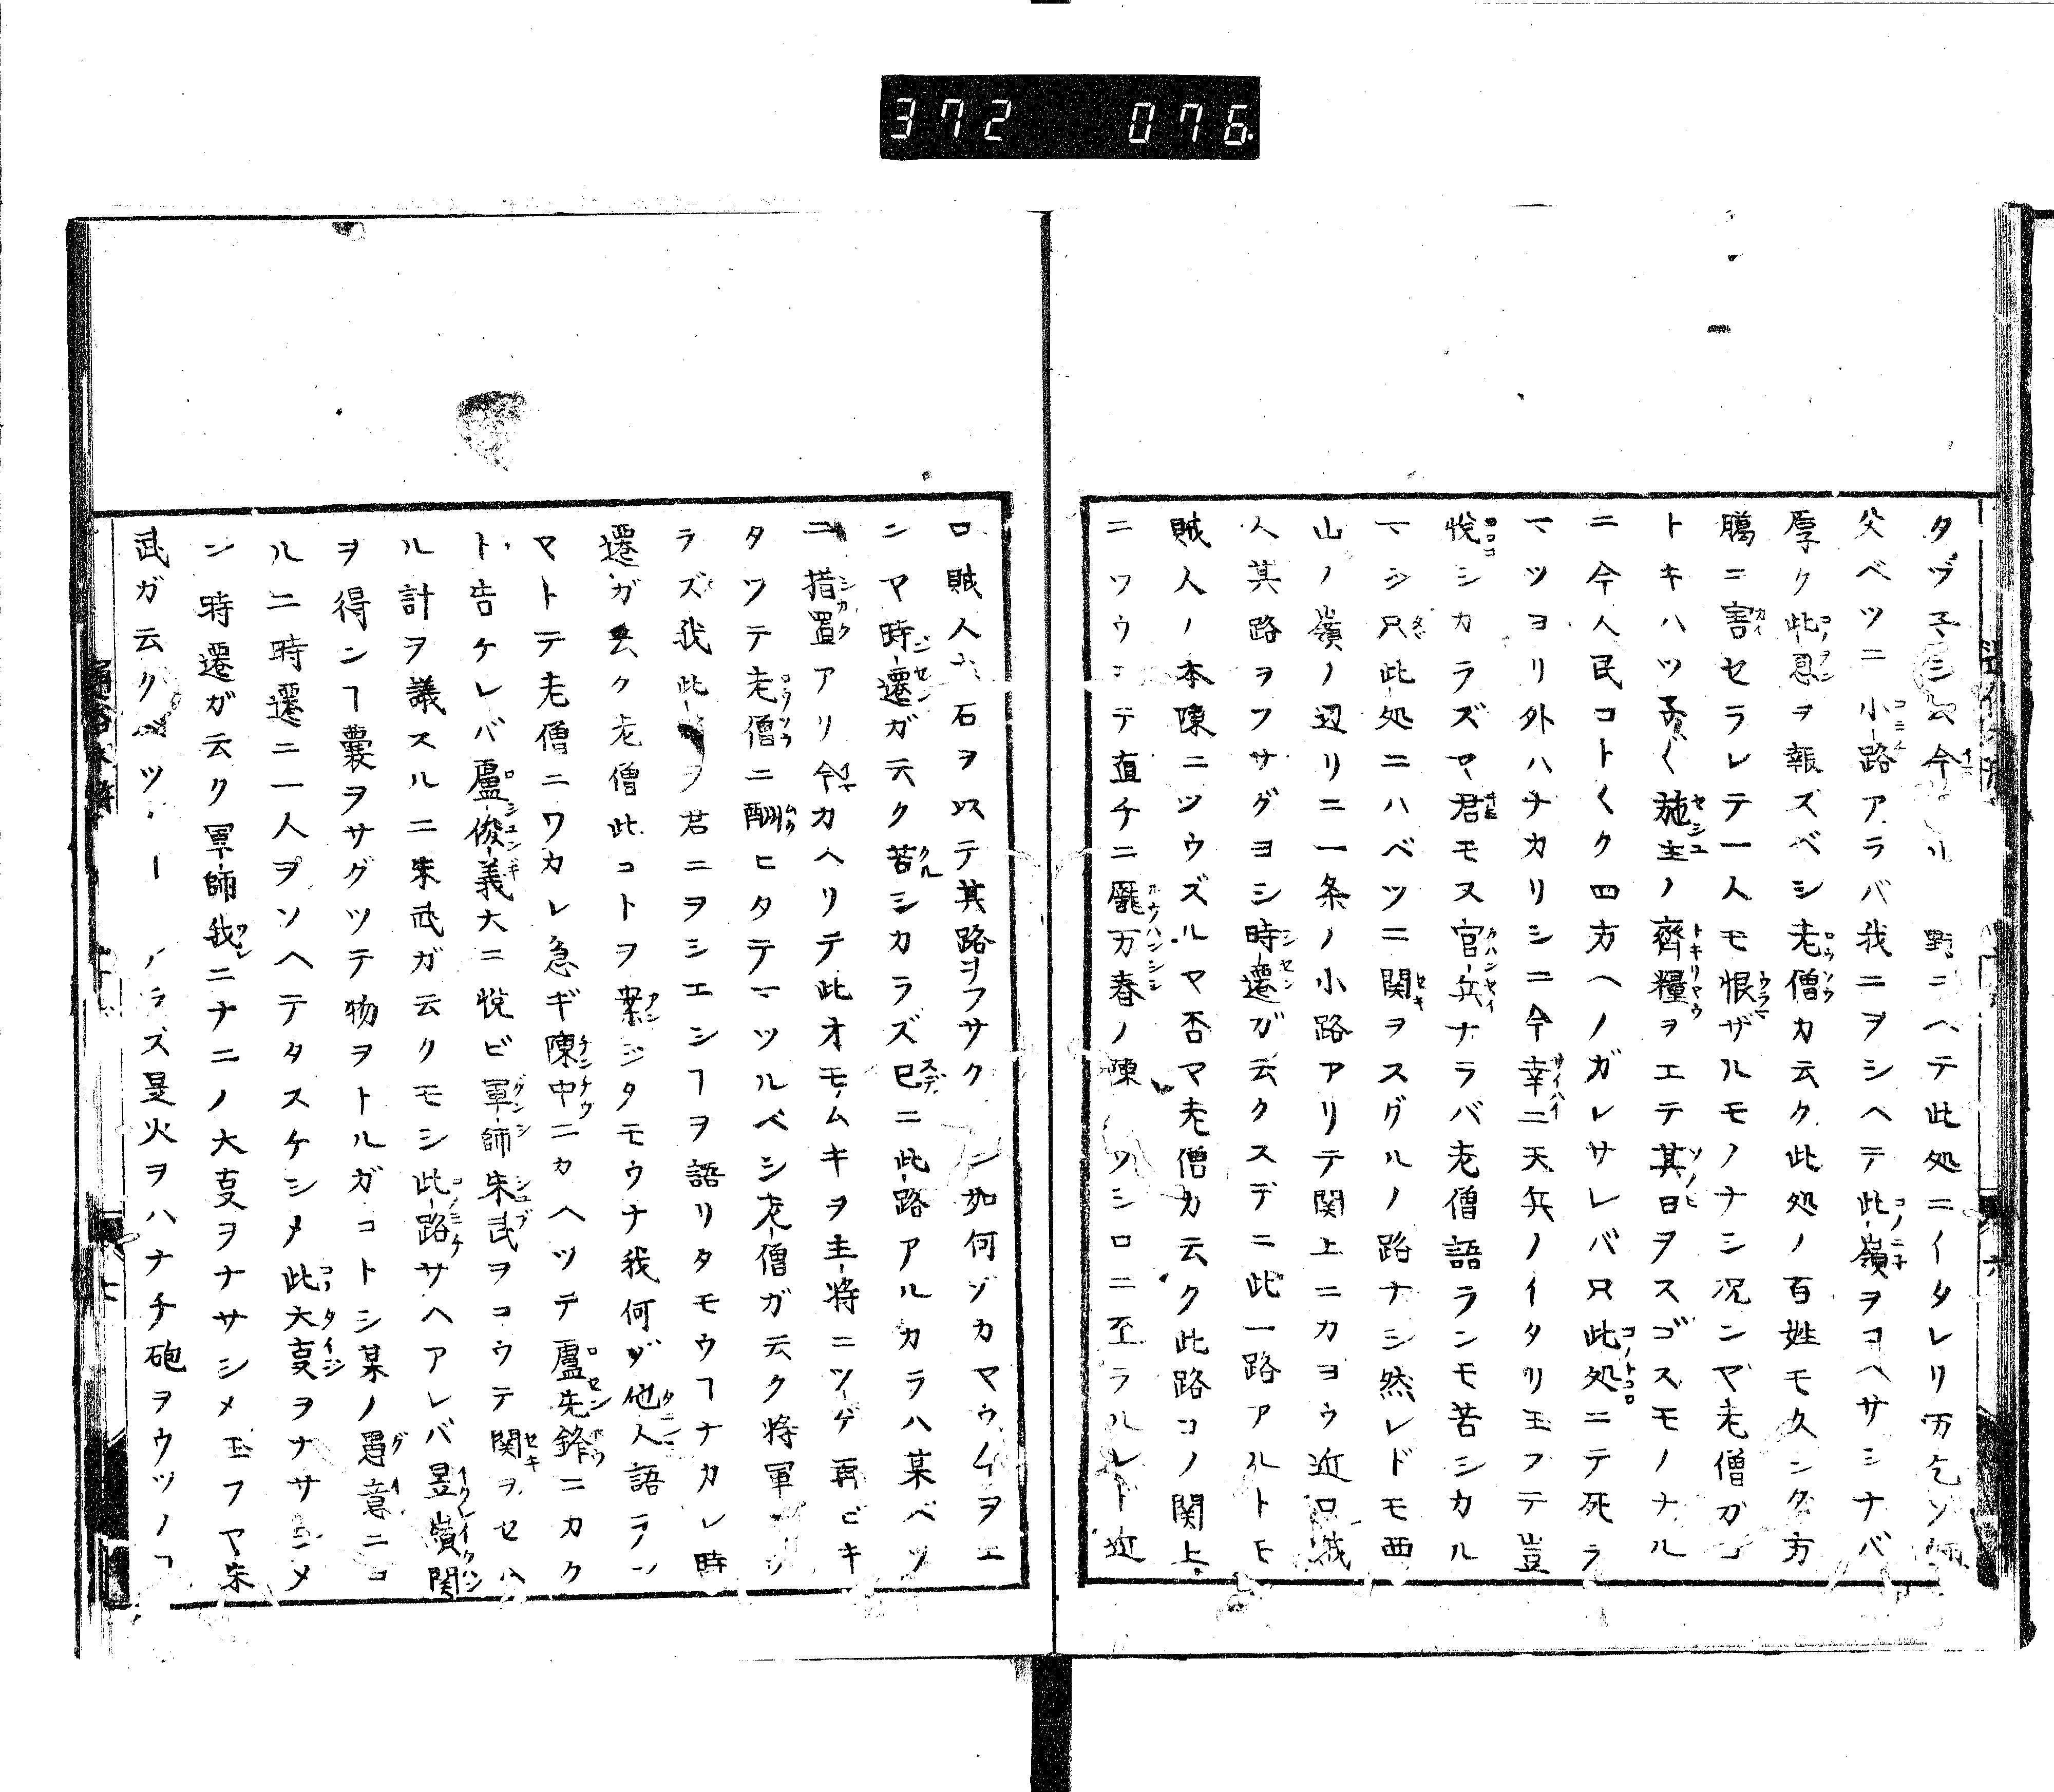 372 076
タヅ子シ云今 リ 野ニヘテ此処ニイタレリ万乞ソ師
父ベツニ小路アラバ我ニヲシヘテ此嶺ヲコヘサシナバ
厚ク此恩ヲ報ズベシ老僧カ云ク此処ノ百姓モ久シク方
臈ニ害セラレテ一人モ恨ザルモノナシ况ンヤ老僧ガコ
トキハツ子〱施主ノ齊糧ヲエテ其日ヲスゴスモノナル
ニ今人民コト〱ク四方ヘノガレサレバ只此処ニテ死ラ
マツヨリ外ハナカリシニ今幸ニ天兵ノイタリ玉フテ豈
悦シカラズヤ君モス官兵ナラバ老僧語ランモ苦シカル
マシ只此処ニハベツニ関ヲスグルノ路ナシ然レドモ西
山ノ嶺ノ辺リニ一条ノ小路アリテ関上ニカヨウ近口賊
人其路ヲフサグヨシ時遷ガ云クスデニ此一路アルトモ
賊人ノ本陳ニツウズルヤ否ヤ老僧カ云ク此路コノ関上
ニツウシテ直チニ龐万春ノ陳 ツシロニ至ラルレドド近
ロ賊人大石ヲ以テ其路ヲフサク ン如何ゾカマウイヲエ
ンヤ時遷ガ云ク苦シカラズ巳ニ此路アルカラハ某ベツ
ニ措置アリ今カヘリテ此オモムキヲ主将ニツゲ再ビキ
タツテ老僧ニ酬ヒタテマツルベシ老僧ガ云ク将軍
ラズ我此 ヲ君ニヲシエシヿヲ語リタモウヿナカレ時
遷ガ云ク老僧此コトヲ案ジタモウナ我何ゾ他人語ラン
ヤトテ老僧ニワカレ急ギ陳中ニカヘツテ盧先鋒ニカク
ト告ケレバ盧俊義大ニ悦ビ軍師朱武ヲコウテ関ヲセハ
ル計ヲ議スルニ朱武ガ云クモシ此路サヘアレバ昱嶺関
ヲ得ンヿ嚢ヲサグツテ物ヲトルガコトシ某ノ愚意ニコ
ルニ時遷ニ一人ヲソヘテタスケシメ此大㕝ヲナサシメ
ン時遷ガ云ク軍師我ニナニノ大㕝ヲナサシメ玉フヤ朱
武ガ云クベツ ノラズ是火ヲハナチ砲ヲウツノヿ